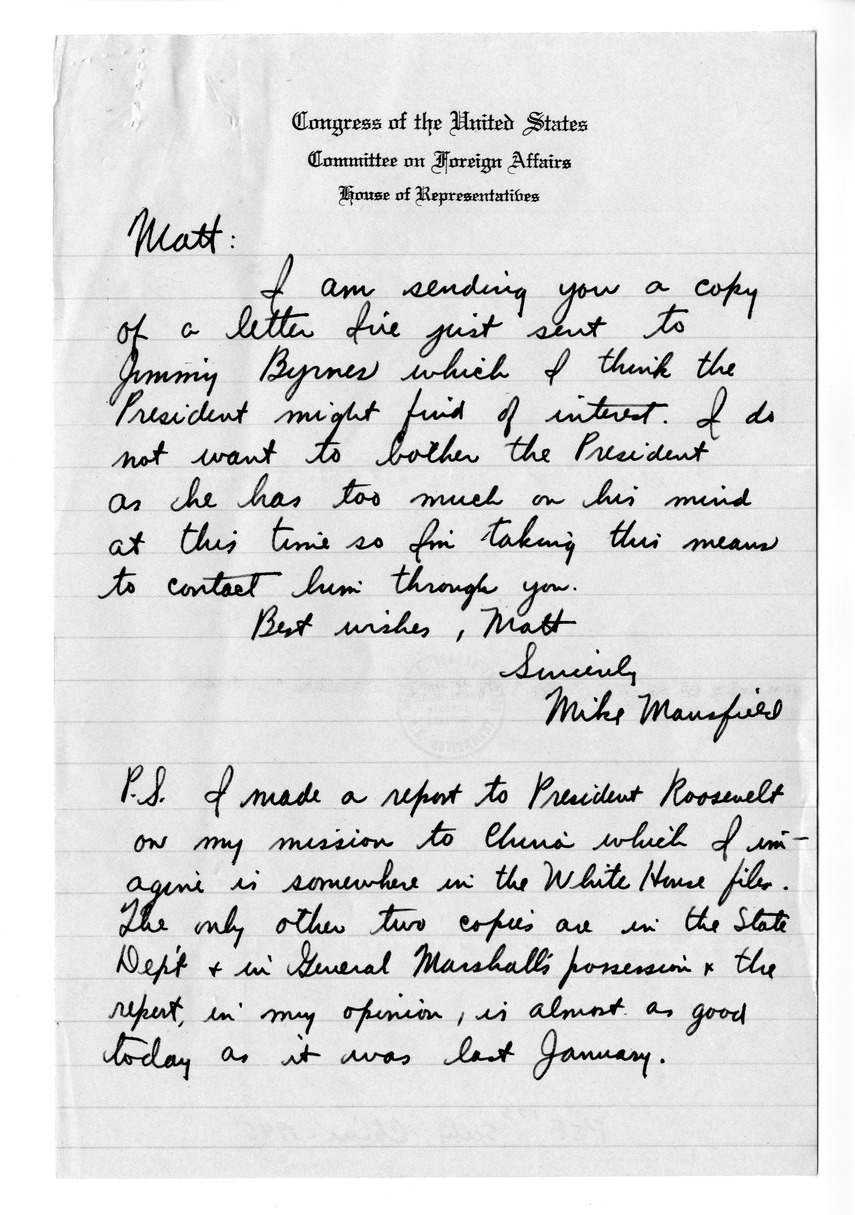 Congress of the United States
Committee on Foreign Affairs
House of Representatives
Matt:
I am sending you a copy
of a letter I've just sent to
Jimmy Byrnes which I think the
President might find of interest. I do
not want to bother the President
as he has too much on his mind
at this time so I'm taking this means
to contact him through you.
Best wishes, Matt
Sincerely
Mike Mansfield
P.S. I made a report to President Roosevelt
on my mission to China which I im-
agine is somewhere in the White House files.
The only other two copies are in the State
Dep't & in General Marshall's possession & the
report, in my opinion, is almost as good
today as it was last January.